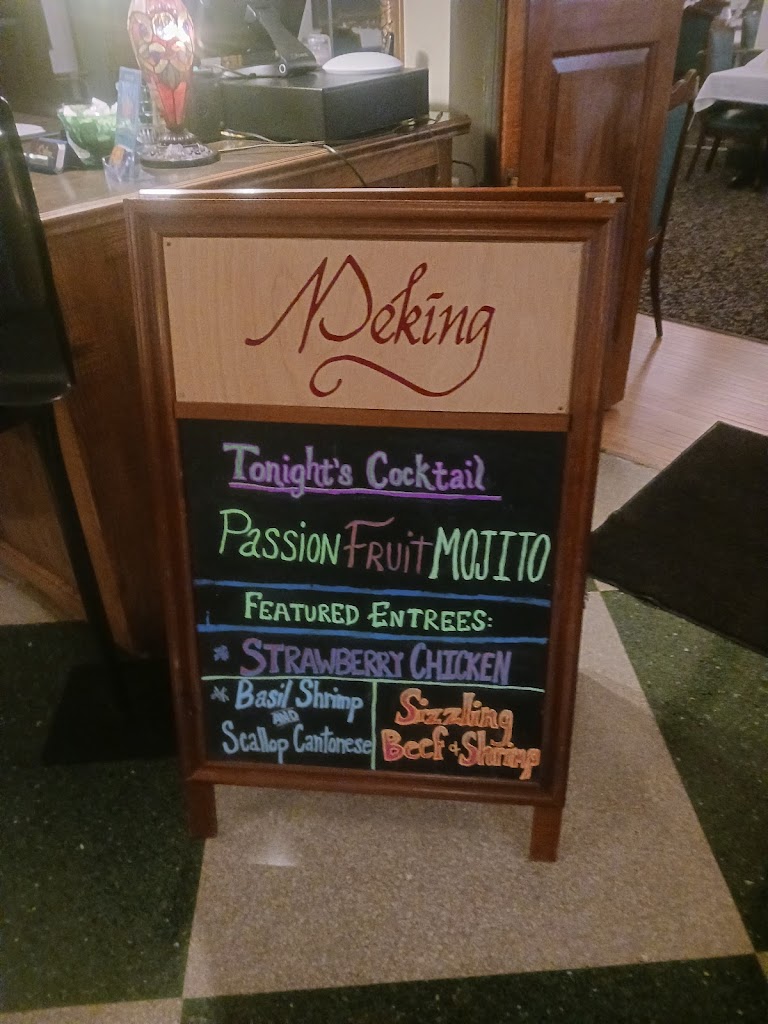 Peking
Tonight's Cocktail
Passion Fruit MOJITO
FEATURED ENTREES:
* STRAWBERRY CHICKEN
* Basil Shrimp
AND
Scallop Cantonese
Sizzling
Beef + Shrimp